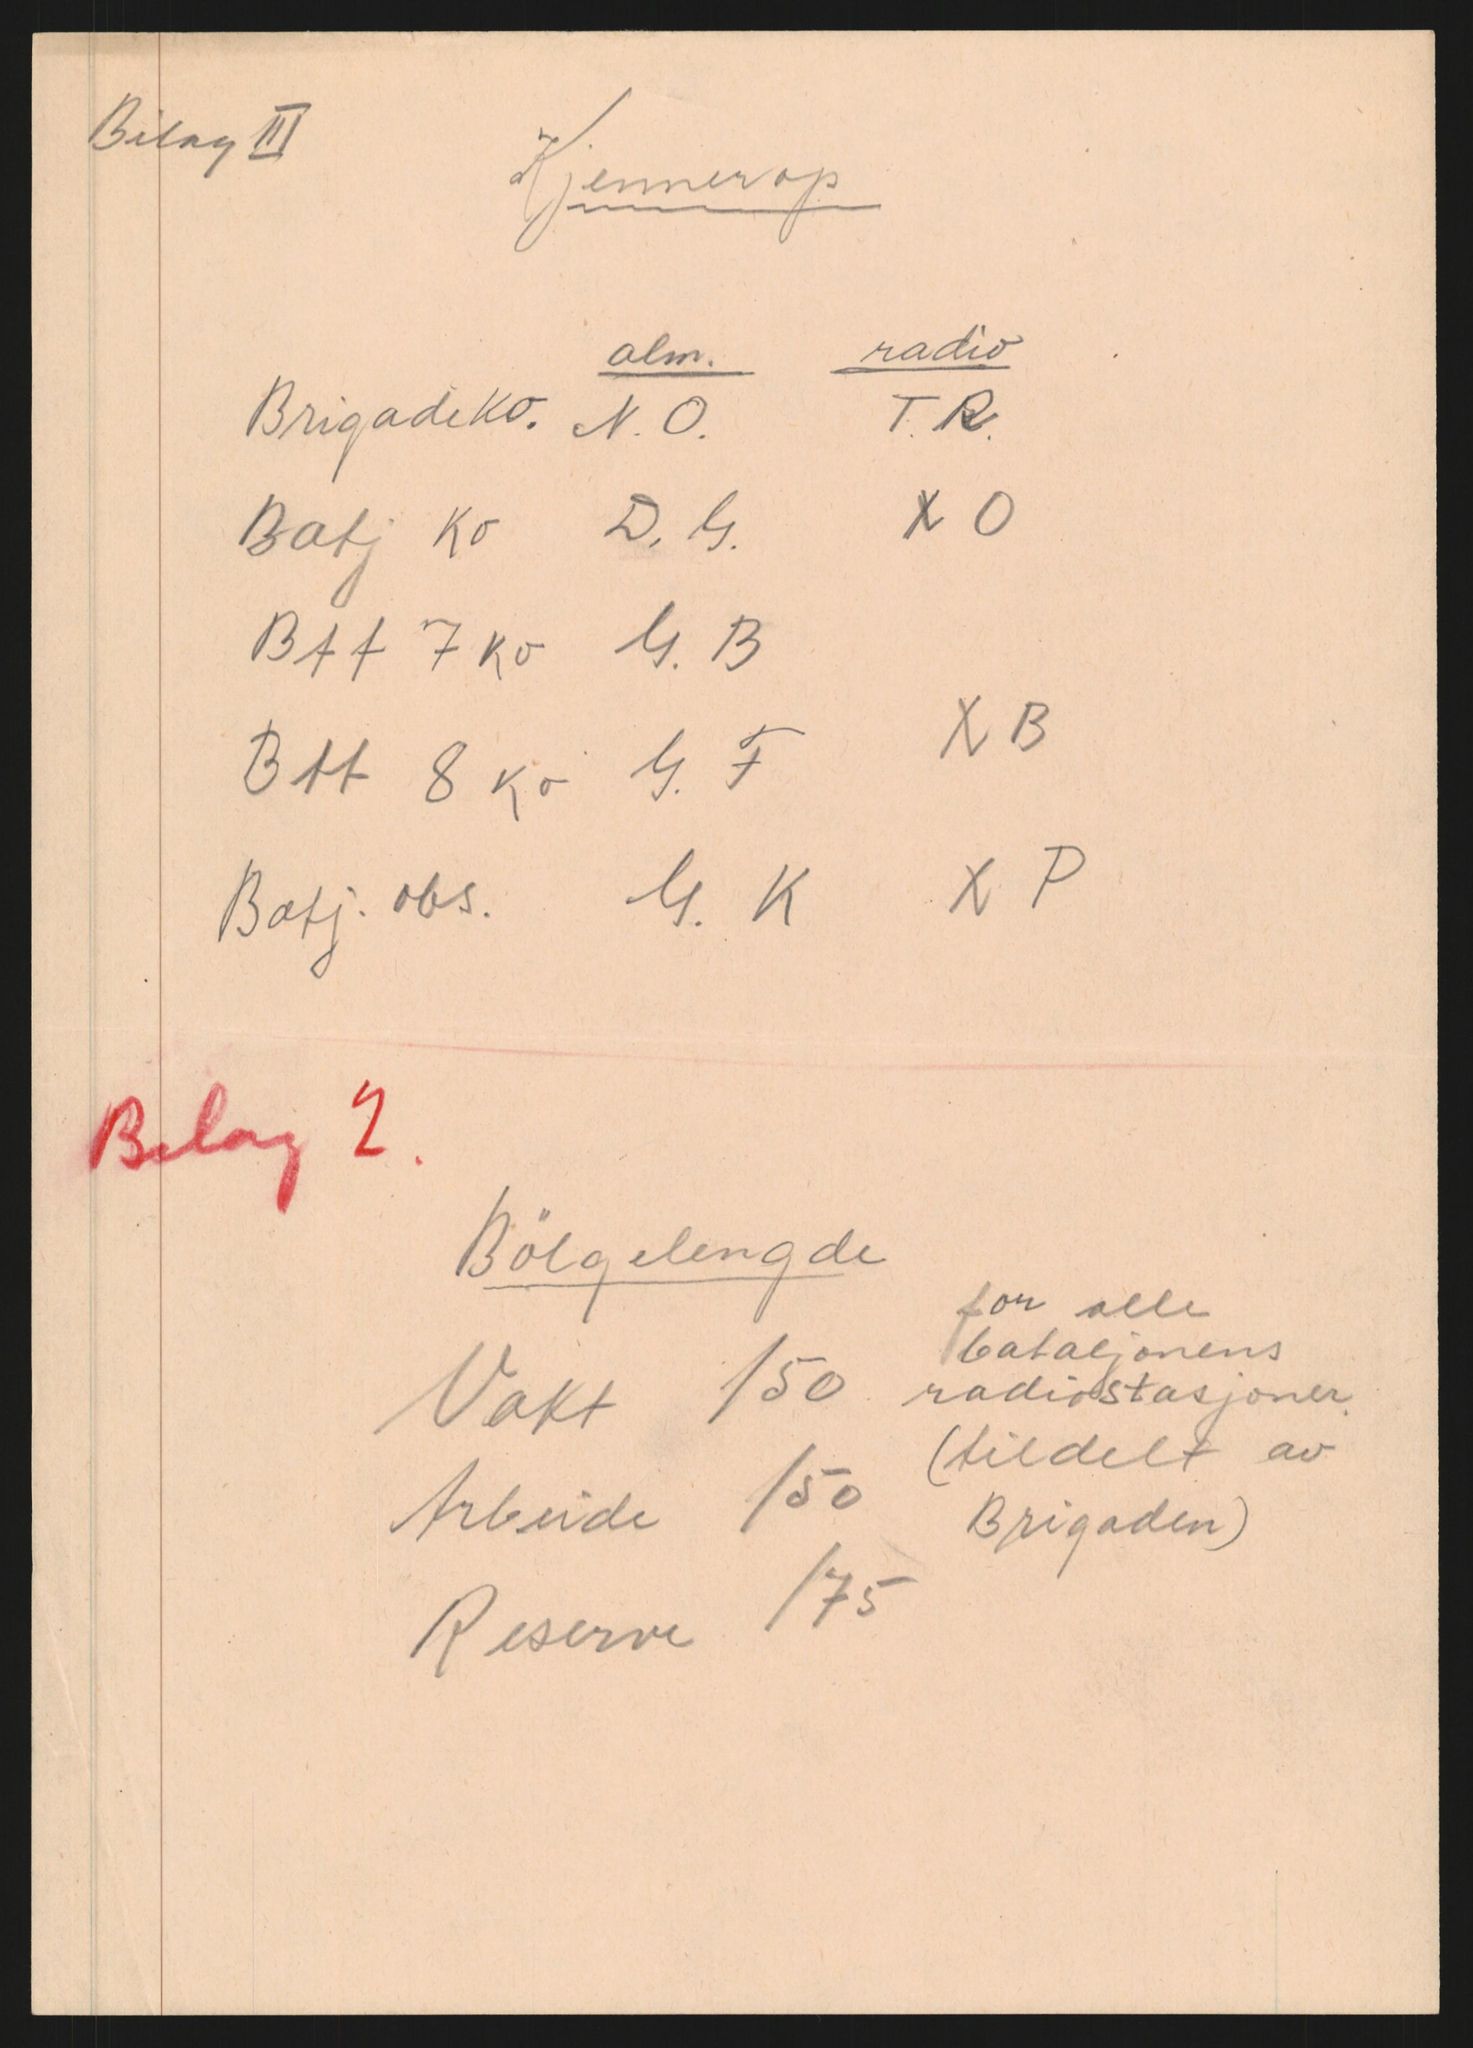 Bilag III
Kjennerop
alm. radio
Brigadeko. N. O. T. R.
Batj Ko D. G. X O
Btt 7 Ko G. B
Btt 8 Ko G. F X B
Batj. obs. G. K X P
Bilag 2.
Bölgelengde
Vakt 150
for alle
bataljonens
radiostasjoner.
(tildelt av
Brigaden)
Arbeide 150
Reserve 175